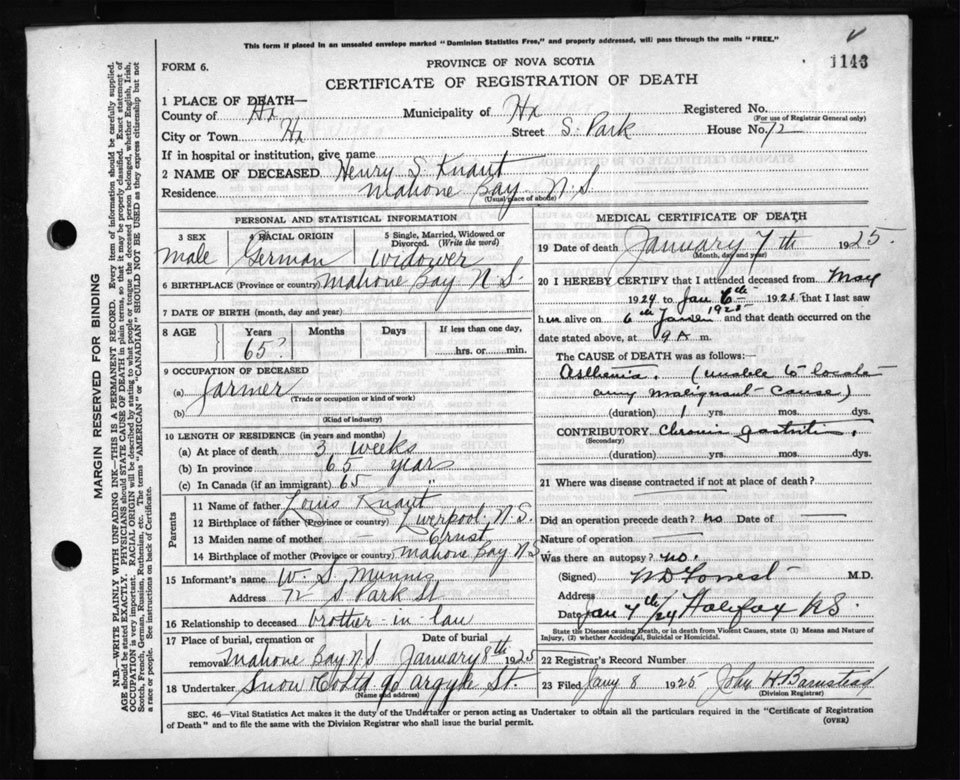 This form if placed in an unsealed envelope marked "Dominion Statistics Free," and properly addressed, will pass through the mails "FREE."
1143
FORM 6.
PROVINCE OF NOVA SCOTIA
CERTIFICATE OF REGISTRATION OF DEATH
1 PLACE OF DEATH—
County of Hx Municipality of Hx Registered No.
(For use of Registrar General only)
City or Town Hx Street S. Park House No. 72
If in hospital or institution, give name
2 NAME OF DECEASED Henry S. Knaut
Residence Mahone Bay N.S.
(Usual place of abode)
PERSONAL AND STATISTICAL INFORMATION
3 SEX 4 RACIAL ORIGIN 5 Single, Married, Widowed or Divorced. (Write the word)
Male German Widower
6 BIRTHPLACE (Province or country) Mahone Bay N.S.
7 DATE OF BIRTH (month, day and year)
8 AGE Years Months Days If less than one day,
65? ......hrs. or......min.
9 OCCUPATION OF DECEASED
(a) Farmer
(Trade or occupation or kind of work)
(b)
(Kind of industry)
10 LENGTH OF RESIDENCE (in years and months)
(a) At place of death 3 weeks
(b) In province 65 years
(c) In Canada (if an immigrant) 65 "
Parents
11 Name of father Louis Knaut
12 Birthplace of father (Province or country) Liverpool N.S.
13 Maiden name of mother — Ernst
14 Birthplace of mother (Province or country) Mahone Bay N.S.
15 Informant's name W. S. Munnis
Address 72 S Park St
16 Relationship to deceased brother-in-law
17 Place of burial, cremation or removal Mahone Bay N S Date of burial January 8th 1925
18 Undertaker Snow & Co Ltd 90 Argyle St.
(Name and address)
MEDICAL CERTIFICATE OF DEATH
19 Date of death January 7th 1925.
(Month, day and year)
20 I HEREBY CERTIFY that I attended deceased from May
1924 to Jan 6th 1925 that I last saw
him alive on 6th 1925 and that death occurred on
date stated above, at 9 A m.
The CAUSE OF DEATH was as follows:—
Asthenia. (unable to locate
any malignant cause)
(duration) 1 yrs. mos. dys.
CONTRIBUTORY Chronic gastritis.
(Secondary)
(duration) yrs. mos. dys.
21 Where was disease contracted if not at place of death?
Did an operation precede death? no Date of —
Nature of operation —
Was there an autopsy? no.
(Signed) W D Forrest M.D.
Address
Date Jan 7th/24 Halifax N.S.
State the Disease causing Death, or in death from Violent Causes, state (1) Means and Nature of Injury, (2) whether Accidental, Suicidal or Homicidal.
22 Registrar's Record Number
23 Filed Jany 8 1925 John H Barnstead
(Division Registrar)
SEC. 46—Vital Statistics Act makes it the duty of the Undertaker or person acting as Undertaker to obtain all the particulars required in the "Certificate of Registration
of Death" and to file the same with the Division Registrar who shall issue the burial permit.
(OVER)
MARGIN RESERVED FOR BINDING
N.B.—WRITE PLAINLY WITH UNFADING INK—THIS IS A PERMANENT RECORD. Every item of information should be carefully supplied.
AGE should be stated EXACTLY. PHYSICIANS should STATE CAUSE OF DEATH in plain terms, so that it may be properly classified. Exact statement of
OCCUPATION is very important. RACIAL ORIGIN will be described by stating to what people or tongue the deceased person belonged, whether English, Irish,
Scotch, French, German, Russian, Ruthenian, etc. The terms "AMERICAN" or "CANADIAN" SHOULD NOT BE USED as they express citizenship but not
a race or people. See instructions on back of Certificate.